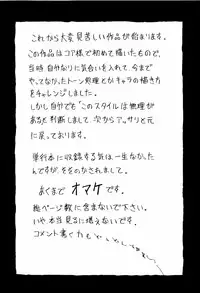 これから大変見苦しい作品が始まります。
この作品はコア様で初めて描いたもので、
当時自分なりに気合いを入れて、今まで
やってなかったトーン処理とかキャラの描き方
をチャレンジしました。
しかし自分でも「このスタイルは無理が
ある」と判断しまして、次からアッサリと元
に戻っております。
単行本に収録する気は一生なかった
んですが、そそのかされまして。
あくまでオマケです。
総ページ数に含まないで下さい。
いや、本当見るに堪えないです。
コメント書く力も